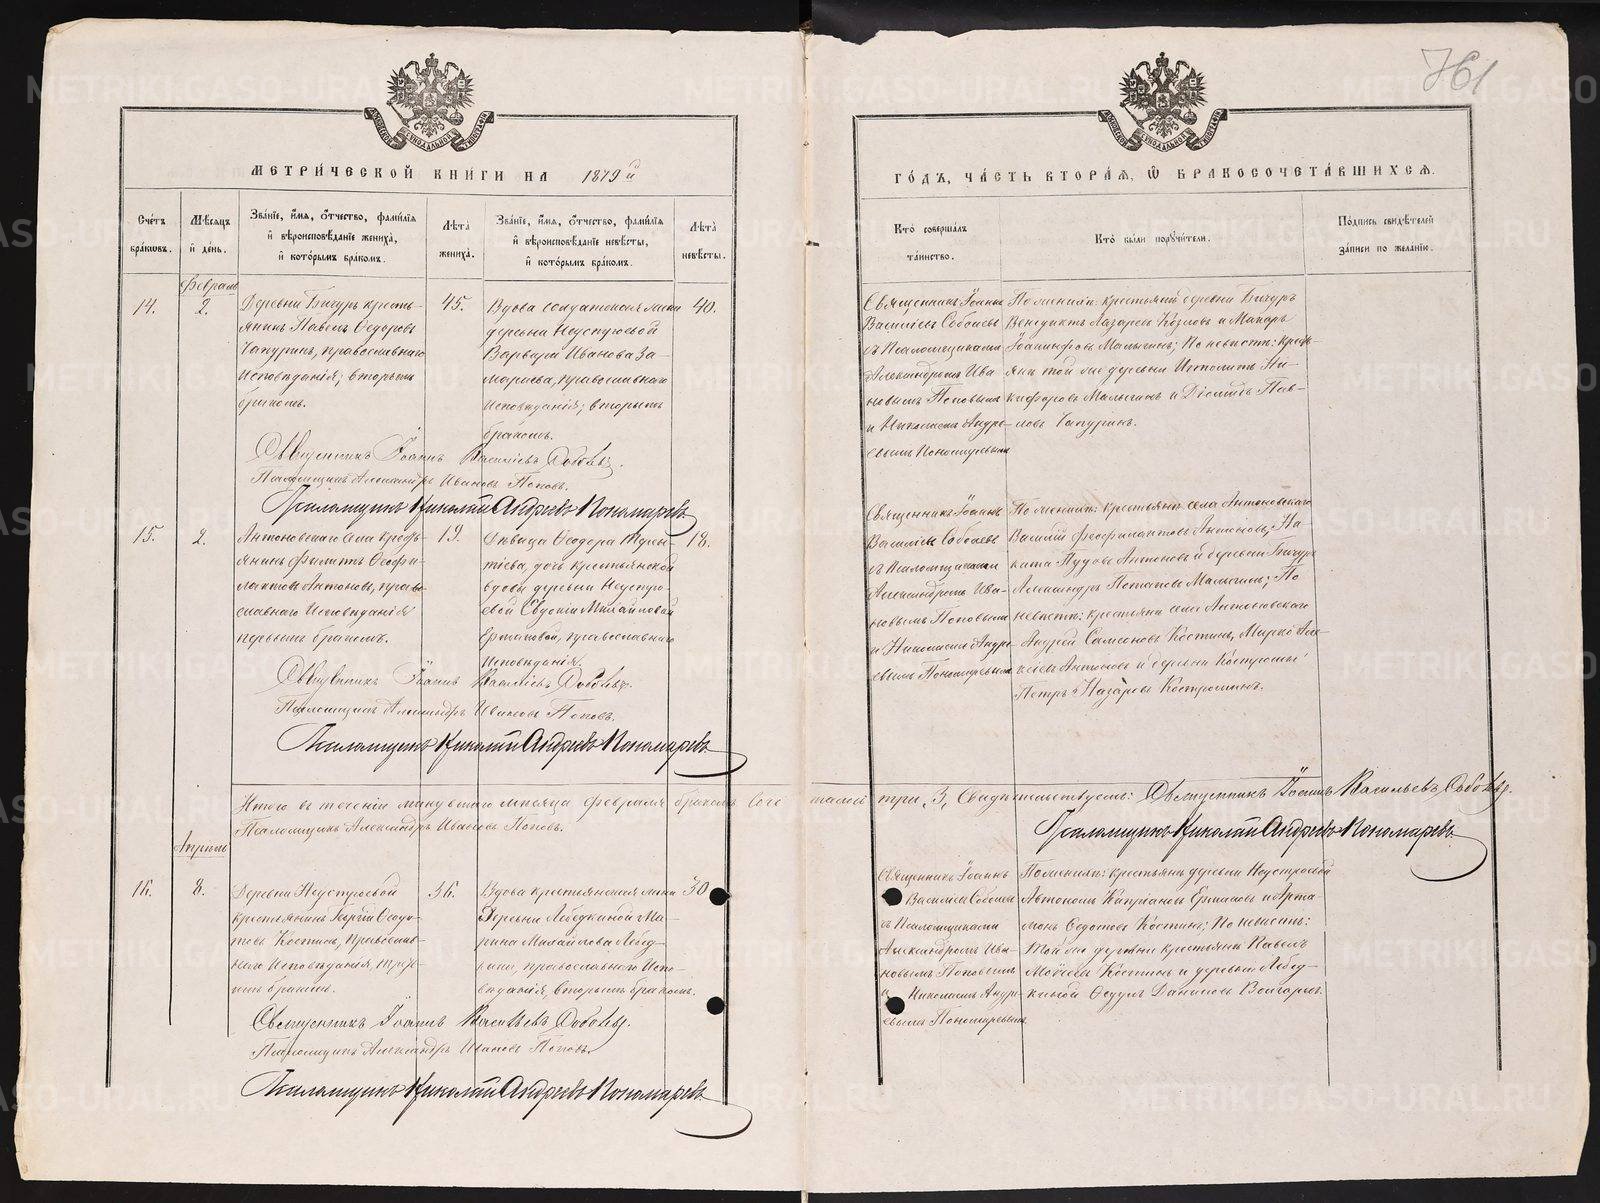 761
МЕТРИ́ЧЕСКОЙ КНИ́ГИ НА 1879й
ГО́ДЪ, ЧА́СТЬ ВТОРА́Ѧ, Ѽ БРАКОСОЧЕТА́ВШИХСѦ.
Сче́тъ бра́ковъ.
Мѣ́сѧцъ и҆ де́нь.
Зва́нїе, и҆́мѧ, ѻ҆́тчество, фами́лїѧ и҆ вѣроисповѣ́данїе жениха̀, и҆ кото́рымъ бра́комъ.
Лѣ́та жениха̀.
Зва́нїе, и҆́мѧ, ѻ҆́тчество, фами́лїѧ и҆ вѣроисповѣ́данїе невѣ́сты, и҆ кото́рымъ бра́комъ.
Лѣ́та невѣ́сты.
Кто̀ соверша́лъ та́инство.
Кто̀ бы́ли порꙋчи́тели.
По́дпись свидѣ́телей за́писи по жела́нїю.
Февраль
14.
2.
Деревни Бичуръ кресть-
янинъ Павелъ Ѳедоровъ
Чапуринъ, православнаго
Исповѣданія; вторымъ
бракомъ.
45.
Вдова солдатская жена
деревни
Варвара Иванова За-
мараева, православнаго
Исповѣданія; вторымъ
бракомъ.
40.
Священникъ Іоаннъ
Василіевъ Соболевъ
съ Псаломщиками
Александромъ Ива-
новымъ Поповымъ
и Николаемъ Андре-
евымъ Пономаревымъ
По женихѣ: крестьяне деревни Бичуръ
Венедиктъ Лазаревъ Козловъ и Макаръ
Малыгинъ; По невѣстѣ: кресть-
яне той же деревни Ипполитъ Ни-
кифоровъ Малыгинъ и Пав-
ловъ Чапуринъ.
Священникъ Іоаннъ Василіевъ Соболевъ.
Псаломщикъ Александръ Ивановъ Поповъ.
Псаломщикъ Николай Андреевъ Пономаревъ
15.
2.
Антоновскаго села кресть-
янинъ Филиппъ Ѳеофи-
лактовъ Антоновъ, право-
славнаго Исповѣданія
первымъ бракомъ.
19.
Дѣвица Ѳеодора Терен-
тіева, дочь крестьянской
вдовы деревни
Евдокіи Михайловой
Ермаковой, православнаго
Исповѣданія.
18.
Священникъ Іоаннъ
Василіевъ Соболевъ
съ Псаломщиками
Александромъ Ива-
новымъ Поповымъ
и Николаемъ Андре-
евымъ Пономаревымъ
По женихѣ: крестьяне села Антоновскаго
Василій Феофилактовъ Антоновъ, На-
ката Пудовъ Антоновъ и деревни Бичуръ
Александръ Потаповъ Малыгинъ; По
невѣстѣ: крестьяне села Антоновскаго
Андрей Самсоновъ Костинъ, Марко Але-
ксѣевъ Антоновъ и деревни
Петръ Назаровъ Костромин.
Священникъ Іоаннъ Василіевъ Соболевъ.
Псаломщикъ Александръ Ивановъ Поповъ.
Псаломщикъ Николай Андреевъ Пономаревъ
Итого въ теченіи минувшаго мѣсяца февраля браковъ три, 3, Свидѣтельствуемъ: Священникъ Іоаннъ Василіевъ Соболевъ.
Псаломщикъ Александръ Ивановъ Поповъ.
Псаломщикъ Николай Андреевъ Пономаревъ
Апрель
16.
8.
Деревни
крестьянинъ Георгій Ѳедо-
товъ Костинъ, Православ-
наго Исповѣданія, треть-
имъ бракомъ.
36.
Вдова крестьянская жена
Деревни Лебедкиной Ма-
рина Михайлова Лебед-
кина, православнаго Испо-
вѣданія, вторымъ бракомъ.
30
Священникъ Іоаннъ
Василіевъ Соболевъ
съ Псаломщиками
Александромъ Ива-
новымъ Поповымъ
и Николаемъ Андре-
евымъ Пономаревымъ
По женихѣ: крестьяне деревни
Автономъ Капріановъ Ермаковъ и Арта-
монъ Ѳедотовъ Костинъ; По невѣстѣ:
Той же деревни крестьяне Павелъ
Моѵсеевъ Костинъ и деревни Лебед-
киной Ѳедулъ Даниловъ
Священникъ Іоаннъ Василіевъ Соболевъ.
Псаломщикъ Александръ Ивановъ Поповъ.
Псаломщикъ Николай Андреевъ Пономаревъ
METRIKI.GASO-URAL.RU